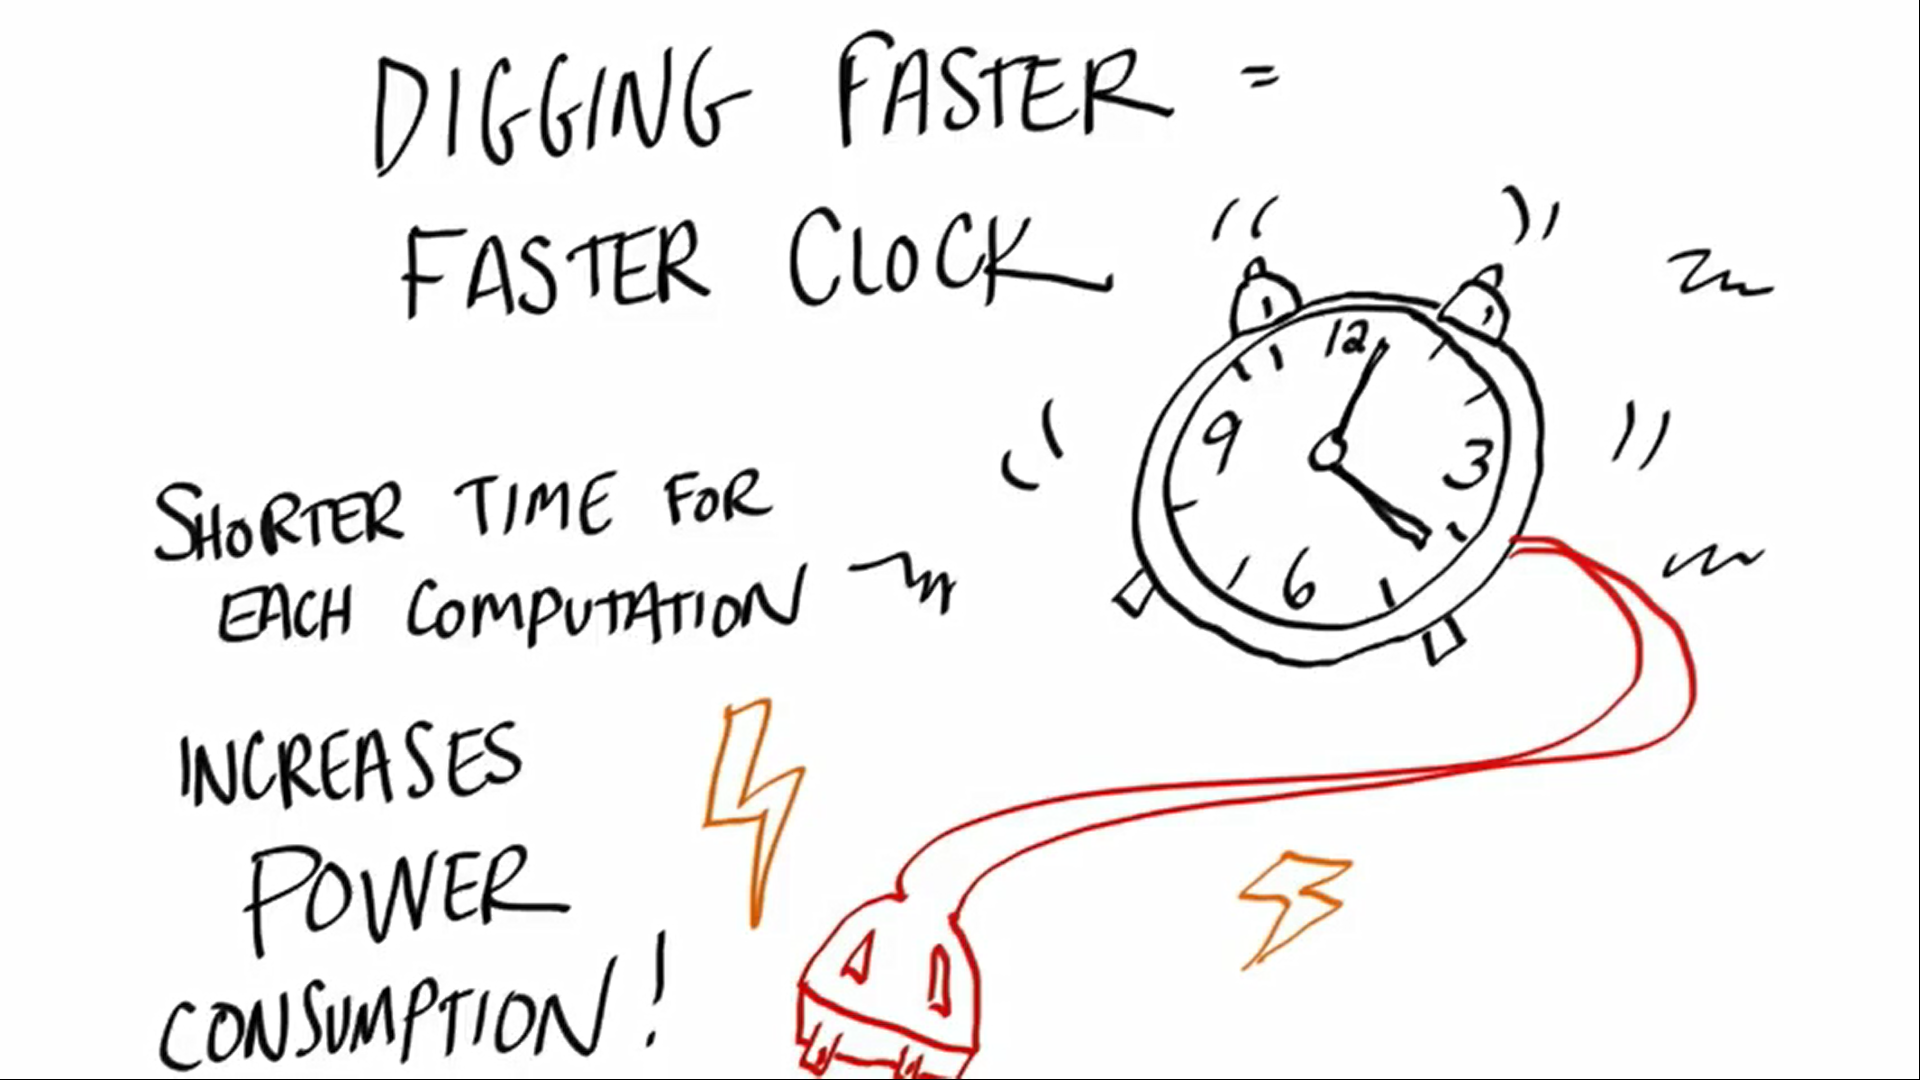 DIGGING FASTER =
FASTER CLOCK
12
9
3
6
SHORTER TIME FOR
EACH COMPUTATION
INCREASES
POWER
CONSUMPTION!